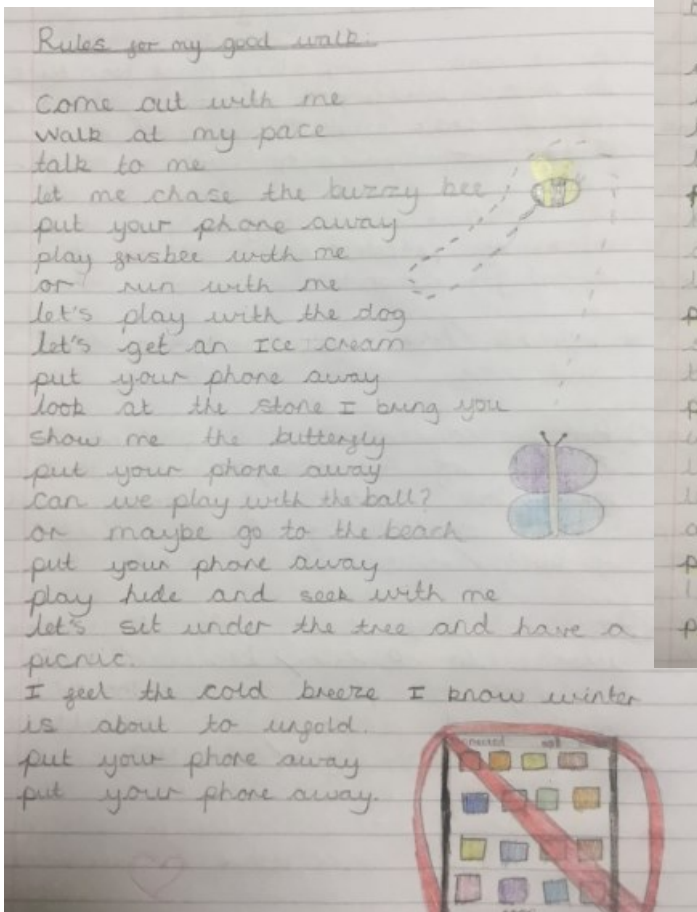 Rules for my good walk.
Come out with me
Walk at my pace
talk to me
let me chase the buzzy bee
put your phone away
play frisbee with me
or run with me
let's play with the dog
let's get an Ice cream
put your phone away
look at the stone I bring you
show me the butterfly
put your phone away
Can we play with the ball?
or maybe go to the beach
put your phone away
play hide and seek with me
let's sit under the tree and have a
picnic.
I feel the cold breeze I know winter
is about to unfold.
put your phone away
put your phone away.